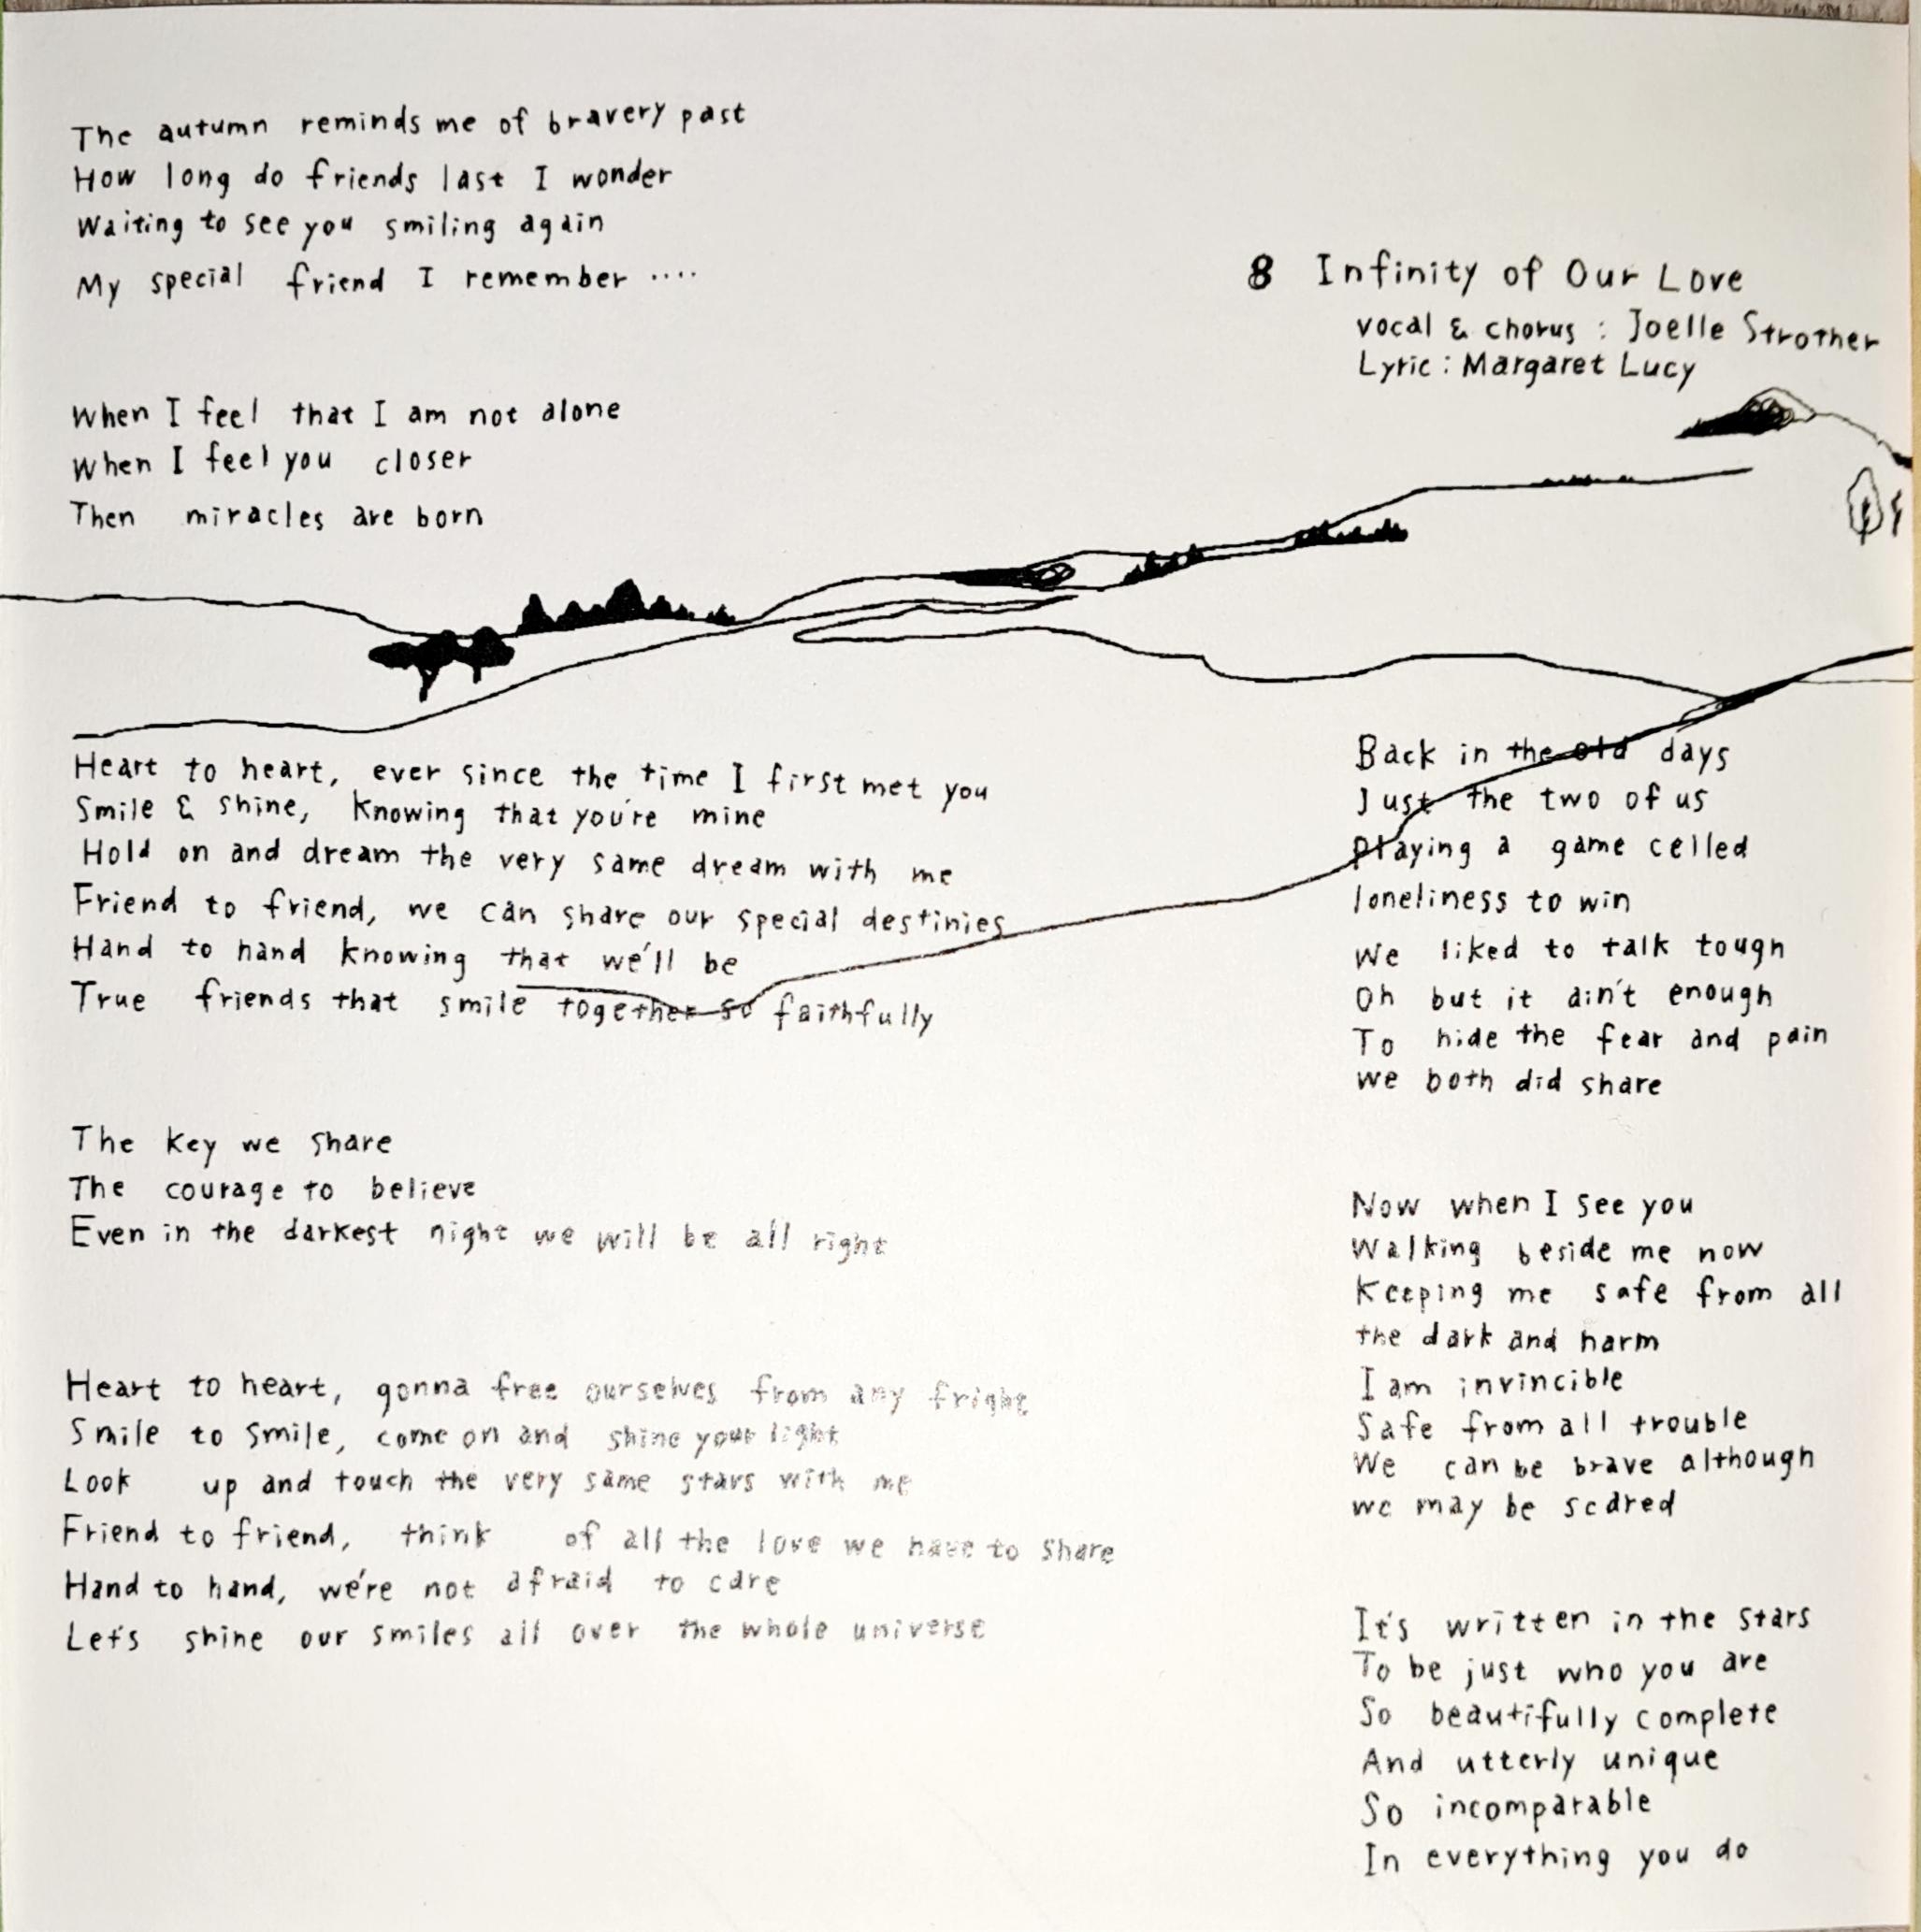 The autumn reminds me of bravery past
How long do friends last I wonder
Waiting to see you smiling again
My special friend I remember ....
When I feel that I am not alone
When I feel you closer
Then miracles are born
Heart to heart, ever since the time I first met you
Smile & shine, knowing that you're mine
Hold on and dream the very same dream with me
Friend to friend, we can share our special destinies
Hand to hand knowing that we'll be
True friends that smile together so faithfully
The key we share
The courage to believe
Even in the darkest night we will be all right
Heart to heart, gonna free ourselves from any fright
Smile to smile, come on and shine your light
Look up and touch the very same stars with me
Friend to friend, think of all the love we have to share
Hand to hand, we're not afraid to care
Let's shine our smiles all over the whole universe
8 Infinity of Our Love
vocal & chorus : Joelle Strother
Lyric : Margaret Lucy
Back in the old days
Just the two of us
playing a game celled
loneliness to win
We liked to talk tough
Oh but it ain't enough
To hide the fear and pain
we both did share
Now when I see you
Walking beside me now
Keeping me safe from all
the dark and harm
I am invincible
Safe from all trouble
We can be brave although
we may be scared
It's written in the stars
To be just who you are
So beautifully complete
And utterly unique
So incomparable
In everything you do